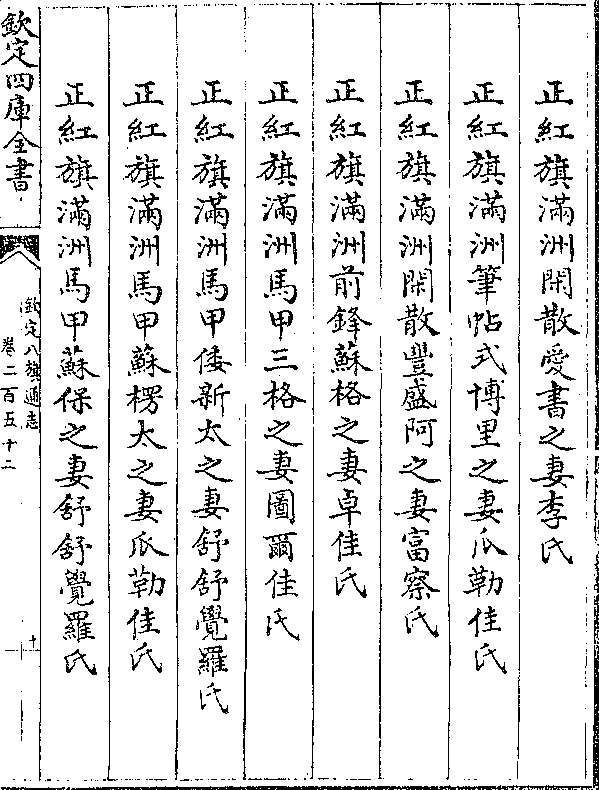 正紅旗滿洲閑散愛書之妻李氏
正紅旗滿洲筆帖式博里之妻瓜勒佳氏
正紅旗滿洲閑散豐盛阿之妻富察氏
正紅旗滿洲前鋒蘇格之妻卓佳氏
正紅旗滿洲馬甲三格之妻圖爾佳氏
正紅旗滿洲馬甲倭新太之妻舒舒覺羅氏
正紅旗滿洲馬甲蘇楞太之妻瓜勒佳氏
正紅旗滿洲馬甲蘇保之妻舒舒覺羅氏
欽定四庫全書
欽定八旗通志
卷二百五十二
十